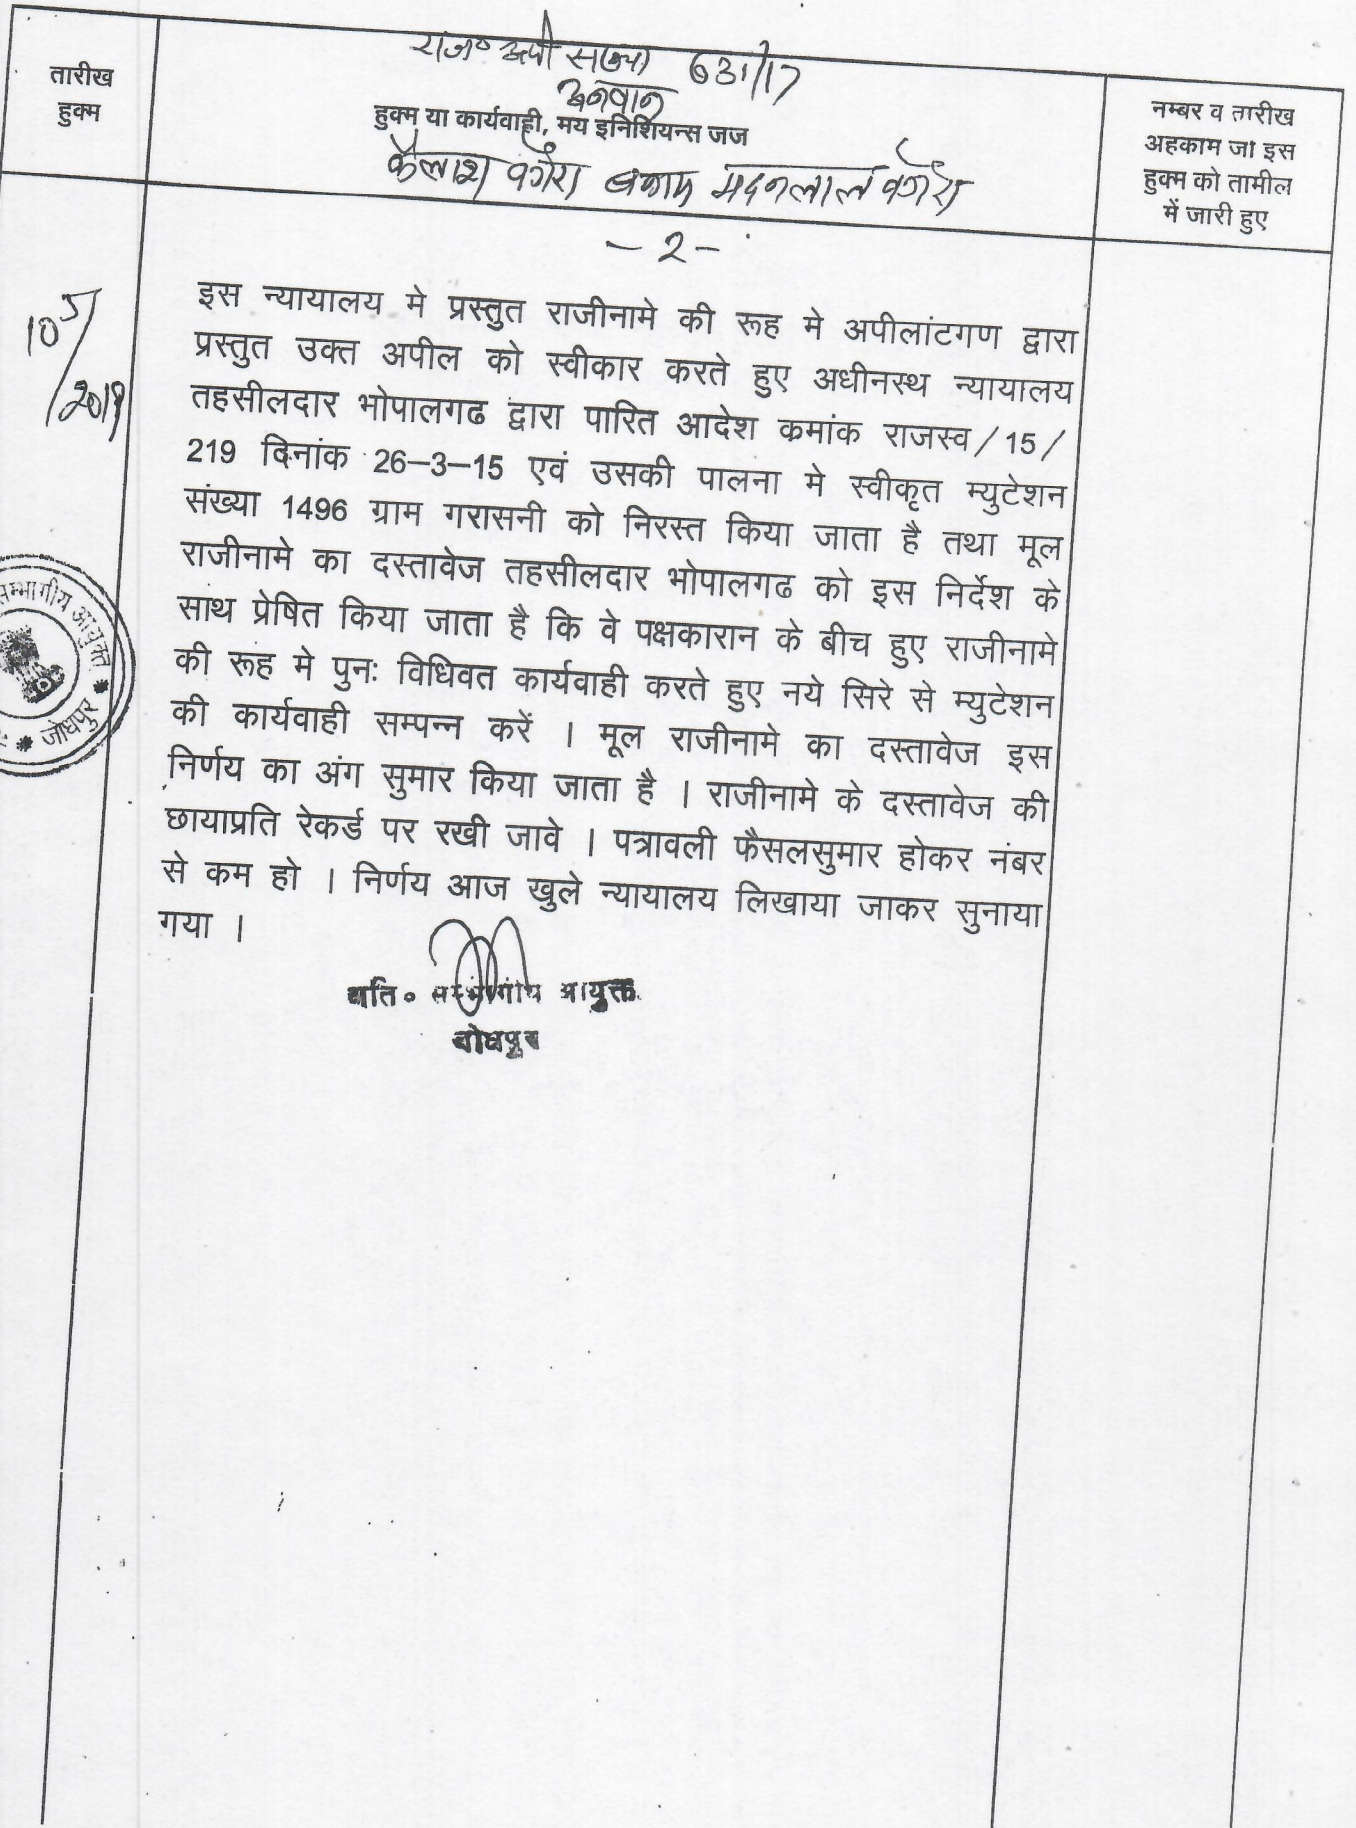 राज० अपील संख्या 631/17
तारीख
हुक्म
अनवान
हुक्म या कार्यवाही, मय इनिशियन्स जज
कैलाश वगैरा बनाम मदनलाल वगैरा
नम्बर व तारीख
अहकाम जो इस
हुक्म को तामील
में जारी हुए
– 2 –
10/5/2019
इस न्यायालय मे प्रस्तुत राजीनामे की रूह मे अपीलांटगण द्वारा
प्रस्तुत उक्त अपील को स्वीकार करते हुए अधीनस्थ न्यायालय
तहसीलदार भोपालगढ द्वारा पारित आदेश कमांक राजस्व/15/
219 दिनांक 26–3–15 एवं उसकी पालना मे स्वीकृत म्युटेशन
संख्या 1496 ग्राम गरासनी को निरस्त किया जाता है तथा मूल
राजीनामे का दस्तावेज तहसीलदार भोपालगढ को इस निर्देश के
साथ प्रेषित किया जाता है कि वे पक्षकारान के बीच हुए राजीनामे
की रूह मे पुनः विधिवत कार्यवाही करते हुए नये सिरे से म्युटेशन
की कार्यवाही सम्पन्न करें । मूल राजीनामे का दस्तावेज इस
निर्णय का अंग सुमार किया जाता है । राजीनामे के दस्तावेज की
छायाप्रति रेकर्ड पर रखी जावे । पत्रावली फैसलसुमार होकर नंबर
से कम हो । निर्णय आज खुले न्यायालय लिखाया जाकर सुनाया
गया ।
सम्भागीय आयुक्त
जोधपुर
अति० सम्भागीय आयुक्त
जोधपुर